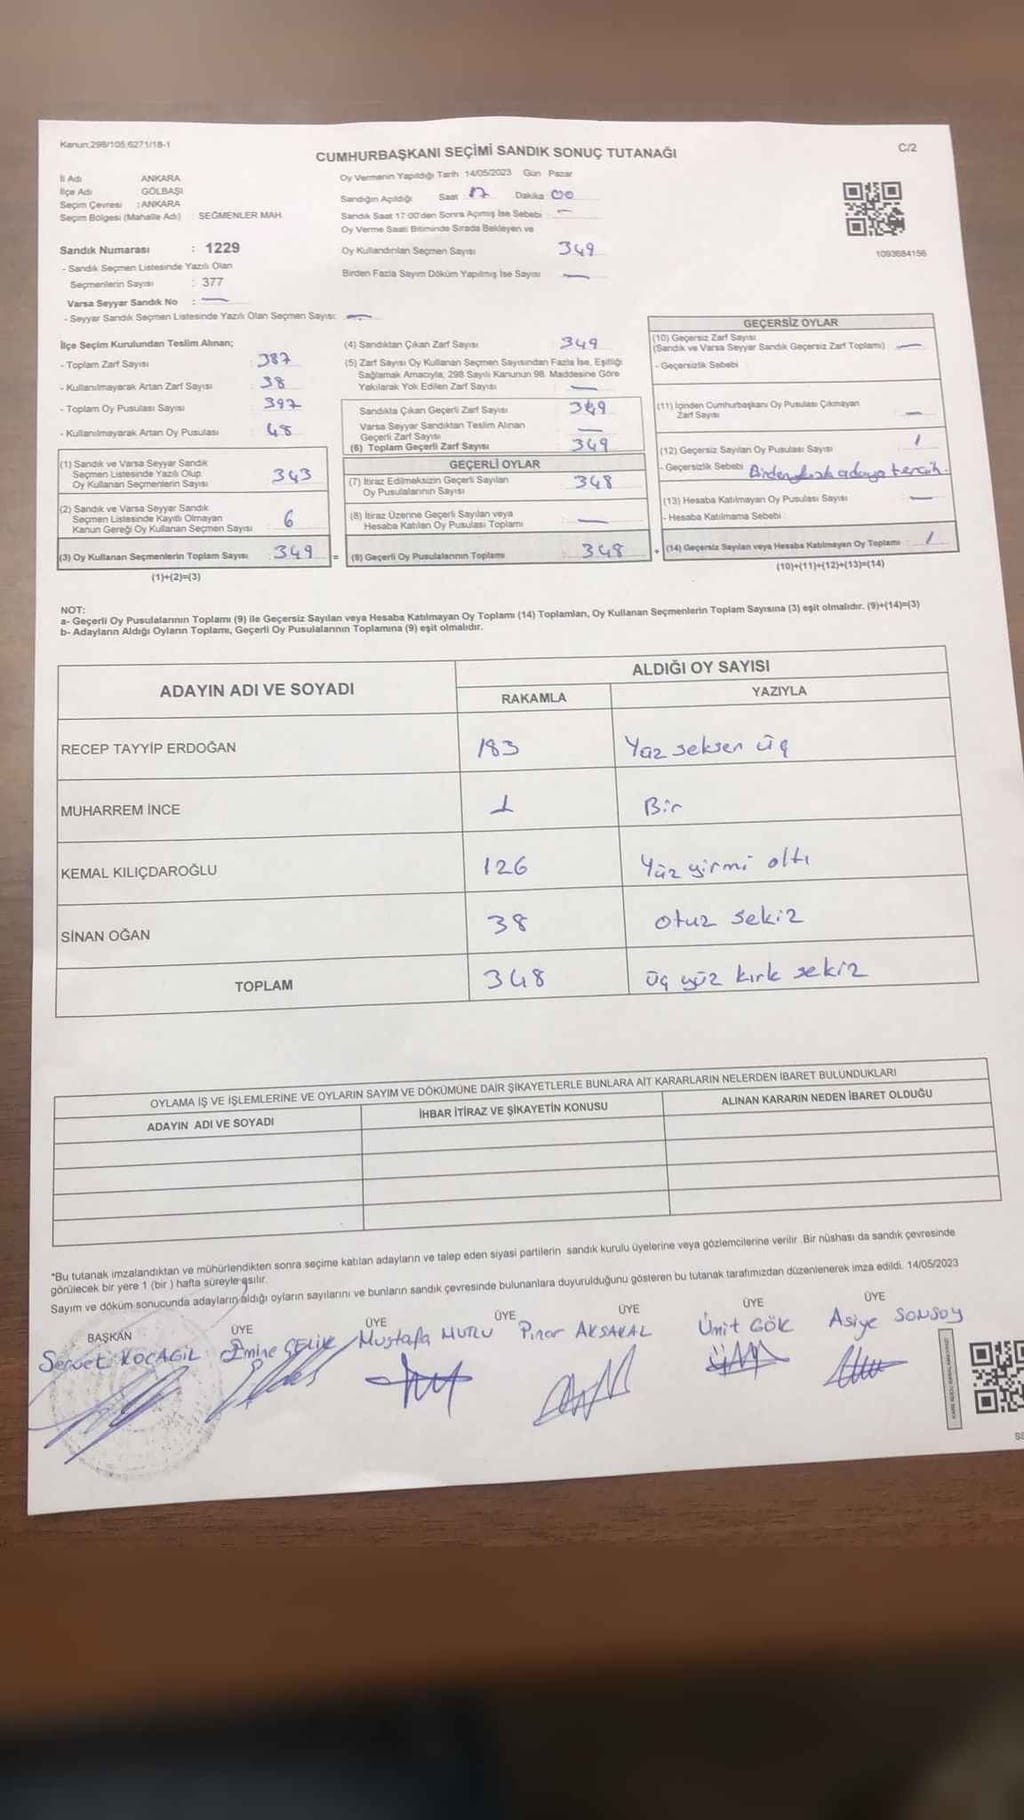 Kanun:298/105;6271/18-1
C/2
CUMHURBAŞKANI SEÇİMİ SANDIK SONUÇ TUTANAĞI
İl Adı ANKARA
İlçe Adı GÖLBAŞI
Seçim Çevresi : ANKARA
Seçim Bölgesi (Mahalle Adı) SEĞMENLER MAH.
Oy Vermenin Yapıldığı Tarih 14/05/2023 Gün Pazar
Sandığın Açıldığı Saat 17 Dakika 00
Sandık Saat 17:00'den Sonra Açımış İse Sebebi —
Oy Verme Saati Bitiminde Sırada Bekleyen ve
Oy Kullandırılan Seçmen Sayısı 349
Birden Fazla Sayım Döküm Yapılmış İse Sayısı —
1093684156
Sandık Numarası : 1229
- Sandık Seçmen Listesinde Yazılı Olan
Seçmenlerin Sayısı : 377
Varsa Seyyar Sandık No : —
- Seyyar Sandık Seçmen Listesinde Yazılı Olan Seçmen Sayısı: —
İlçe Seçim Kurulundan Teslim Alınan;
- Toplam Zarf Sayısı 387
- Kullanılmayarak Artan Zarf Sayısı 38
- Toplam Oy Pusulası Sayısı 397
- Kullanılmayarak Artan Oy Pusulası 48
(1) Sandık ve Varsa Seyyar Sandık
Seçmen Listesinde Yazılı Olup
Oy Kullanan Seçmenlerin Sayısı 343
(2) Sandık ve Varsa Seyyar Sandık
Seçmen Listesinde Kayıtlı Olmayan
Kanun Gereği Oy Kullanan Seçmen Sayısı 6
(3) Oy Kullanan Seçmenlerin Toplam Sayısı 349 =
(1)+(2)=(3)
(4) Sandıktan Çıkan Zarf Sayısı 349
(5) Zarf Sayısı Oy Kullanan Seçmen Sayısından Fazla İse, Eşitliği
Sağlamak Amacıyla, 298 Sayılı Kanunun 98. Maddesine Göre
Yakılarak Yok Edilen Zarf Sayısı —
Sandıkta Çıkan Geçerli Zarf Sayısı 349
Varsa Seyyar Sandıktan Teslim Alınan
Geçerli Zarf Sayısı —
(6) Toplam Geçerli Zarf Sayısı 349
GEÇERLİ OYLAR
(7) İtiraz Edilmeksizin Geçerli Sayılan
Oy Pusulalarının Sayısı 348
(8) İtiraz Üzerine Geçerli Sayılan veya
Hesaba Katılan Oy Pusulası Toplamı —
(9) Geçerli Oy Pusulalarının Toplamı 348 +
GEÇERSİZ OYLAR
(10) Geçersiz Zarf Sayısı
(Sandık ve Varsa Seyyar Sandık Geçersiz Zarf Toplamı) —
- Geçersizlik Sebebi
(11) İçinden Cumhurbaşkanı Oy Pusulası Çıkmayan
Zarf Sayısı —
(12) Geçersiz Sayılan Oy Pusulası Sayısı 1
- Geçersizlik Sebebi Birden adaya tercih.
(13) Hesaba Katılmayan Oy Pusulası Sayısı —
- Hesaba Katılmama Sebebi
(14) Geçersiz Sayılan veya Hesaba Katılmayan Oy Toplamı 1
(10)+(11)+(12)+(13)=(14)
NOT:
a- Geçerli Oy Pusulalarının Toplamı (9) ile Geçersiz Sayılan veya Hesaba Katılmayan Oy Toplamı (14) Toplamları, Oy Kullanan Seçmenlerin Toplam Sayısına (3) eşit olmalıdır. (9)+(14)=(3)
b- Adayların Aldığı Oyların Toplamı, Geçerli Oy Pusulalarının Toplamına (9) eşit olmalıdır.
ADAYIN ADI VE SOYADI
ALDIĞI OY SAYISI
RAKAMLA YAZIYLA
RECEP TAYYİP ERDOĞAN 183 Yüz seksen üç
MUHARREM İNCE 1 Bir
KEMAL KILIÇDAROĞLU 126 Yüz yirmi altı
SİNAN OĞAN 38 otuz sekiz
TOPLAM 348 üç yüz kırk sekiz
OYLAMA İŞ VE İŞLEMLERİNE VE OYLARIN SAYIM VE DÖKÜMÜNE DAİR ŞİKAYETLERLE BUNLARA AİT KARARLARIN NELERDEN İBARET BULUNDUKLARI
ADAYIN ADI VE SOYADI İHBAR İTİRAZ VE ŞİKAYETİN KONUSU ALINAN KARARIN NEDEN İBARET OLDUĞU
*Bu tutanak imzalandıktan ve mühürlendikten sonra seçime katılan adayların ve talep eden siyasi partilerin sandık kurulu üyelerine veya gözlemcilerine verilir. Bir nüshası da sandık çevresinde
görülecek bir yere 1 (bir) hafta süreyle asılır.
Sayım ve döküm sonucunda adayların aldığı oyların sayılarını ve bunların sandık çevresinde bulunanlara duyurulduğunu gösteren bu tutanak tarafımızdan düzenlenerek imza edildi. 14/05/2023
BAŞKAN ÜYE ÜYE ÜYE ÜYE ÜYE ÜYE
Servet KOÇAGİL Emine ÇELİK Mustafa MUTLU Pınar AKSAKAL Ümit GÖK Asiye SONSOY